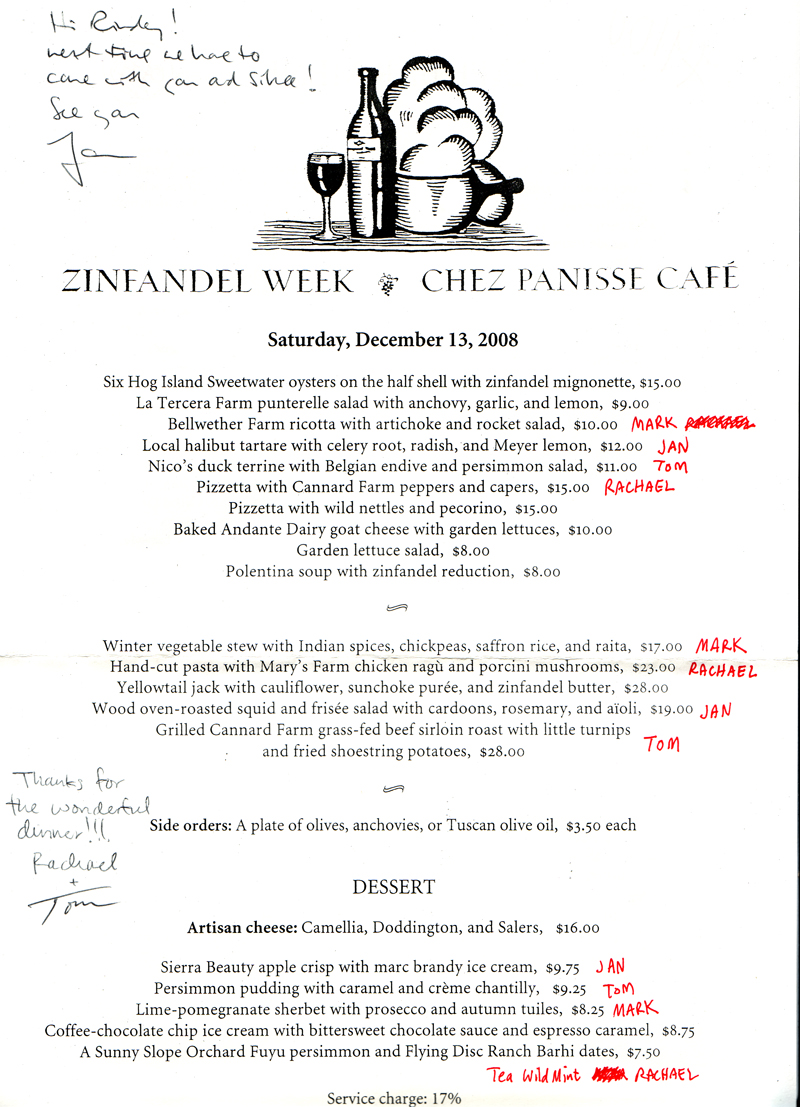 Hi Rindy!
next time we have to
come with you and Sihee!
See you
Jan
ZINFANDEL WEEK CHEZ PANISSE CAFÉ
Saturday, December 13, 2008
Six Hog Island Sweetwater oysters on the half shell with zinfandel mignonette, $15.00
La Tercera Farm punterelle salad with anchovy, garlic, and lemon, $9.00
Bellwether Farm ricotta with artichoke and rocket salad, $10.00 MARK
Local halibut tartare with celery root, radish, and Meyer lemon, $12.00 JAN
Nico's duck terrine with Belgian endive and persimmon salad, $11.00 TOM
Pizzetta with Cannard Farm peppers and capers, $15.00 RACHAEL
Pizzetta with wild nettles and pecorino, $15.00
Baked Andante Dairy goat cheese with garden lettuces, $10.00
Garden lettuce salad, $8.00
Polentina soup with zinfandel reduction, $8.00
Winter vegetable stew with Indian spices, chickpeas, saffron rice, and raita, $17.00 MARK
Hand-cut pasta with Mary's Farm chicken ragù and porcini mushrooms, $23.00 RACHAEL
Yellowtail jack with cauliflower, sunchoke purée, and zinfandel butter, $28.00
Wood oven-roasted squid and frisée salad with cardoons, rosemary, and aïoli, $19.00 JAN
Grilled Cannard Farm grass-fed beef sirloin roast with little turnips
and fried shoestring potatoes, $28.00 TOM
Thanks for
the wonderful
dinner!!!
Rachael
+
Tom
Side orders: A plate of olives, anchovies, or Tuscan olive oil, $3.50 each
DESSERT
Artisan cheese: Camellia, Doddington, and Salers, $16.00
Sierra Beauty apple crisp with marc brandy ice cream, $9.75 JAN
Persimmon pudding with caramel and crème chantilly, $9.25 TOM
Lime-pomegranate sherbet with prosecco and autumn tuiles, $8.25 MARK
Coffee-chocolate chip ice cream with bittersweet chocolate sauce and espresso caramel, $8.75
A Sunny Slope Orchard Fuyu persimmon and Flying Disc Ranch Barhi dates, $7.50
Tea Wild Mint RACHAEL
Service charge: 17%